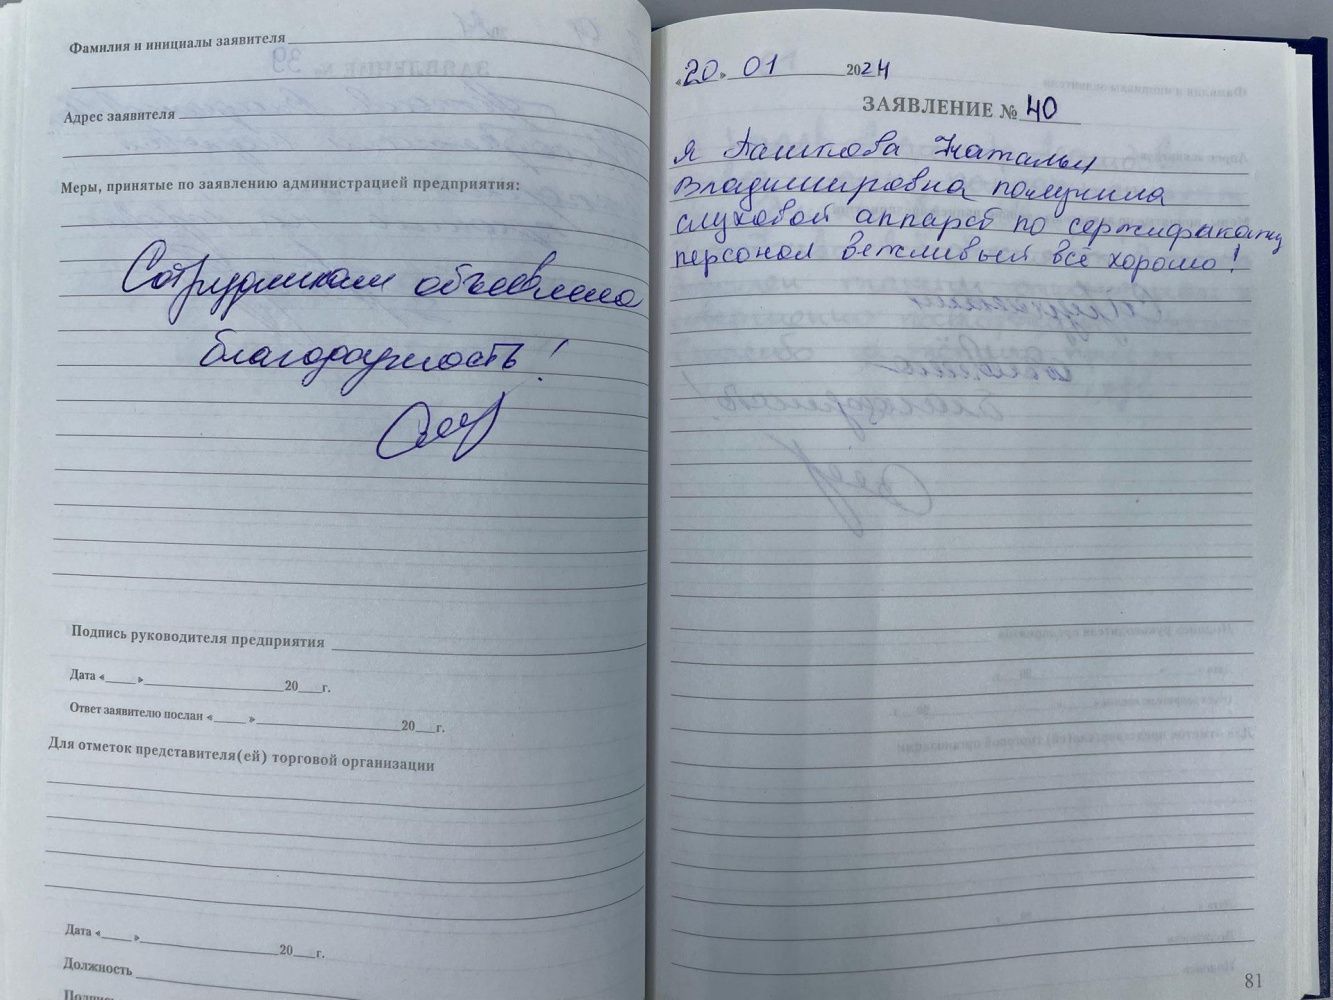 Фамилия и инициалы заявителя
Адрес заявителя
Меры, принятые по заявлению администрацией предприятия:
Сотрудникам объявлена
благодарность!
Подпись руководителя предприятия
Дата «____»____________20___г.
Ответ заявителю послан «____»____________20___г.
Для отметок представителя(ей) торговой организации
Дата «____»____________20___г.
Должность
Подпись
«20» 01 2024
ЗАЯВЛЕНИЕ № 40
Я Пашкова Наталья
Владимировна получила
слуховой аппарат по сертификату
персонал вежливый всё хорошо!
81